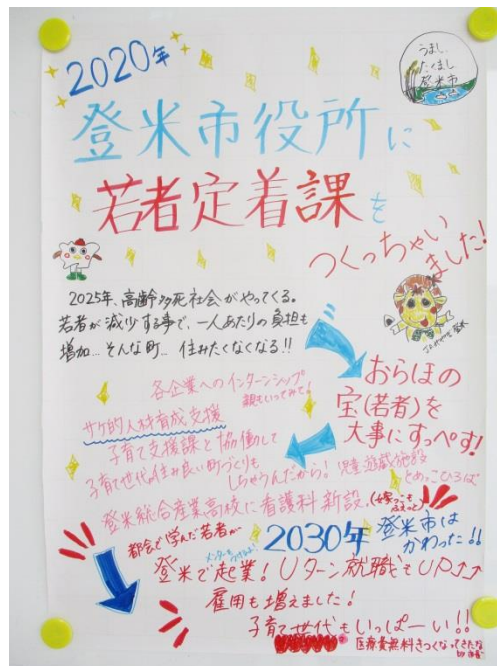 2020年
うまし、
たくまし
登米市
登米市役所に
若者定着課を
つくっちゃい
ました!
2025年、高齢多死社会がやってくる。
若者が減少する事で、一人あたりの負担も
増加...そんな町...住みたくなくなる!!
各企業へのインターンシップ
親もいってみて!
おらほの
宝(若者)を
大事にすっぺす!
サケ的人材育成支援
子育て支援課と協働して
子育て世代の住み良い町づくりも
しちゃうんだから!児童遊戯施設
とめっこひろば
登米総合産業高校に看護科新設。
都会で学んだ若者が
2030年
登米市は
かわった!!
登米で起業!Uターン就職もUP↑↑
雇用も増えました!
子育て世代もいっぱーい!!
医療費無料きつくなってきたな